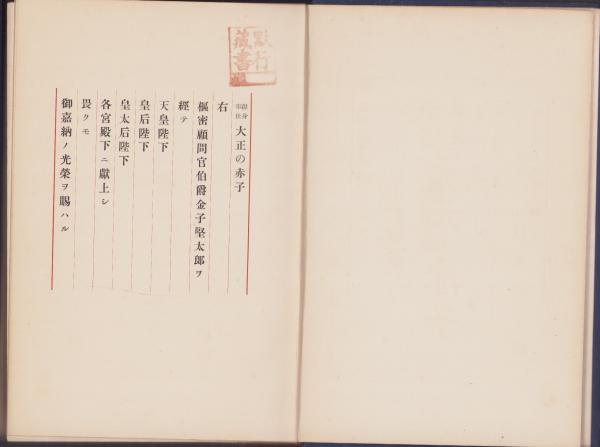 默行藏書
獻身奉仕 大正の赤子
右
樞密顧問官伯爵金子堅太郎ヲ
經テ
天皇陛下
皇后陛下
皇太后陛下
各宮殿下ニ獻上シ
畏クモ
御嘉納ノ光榮ヲ賜ハル